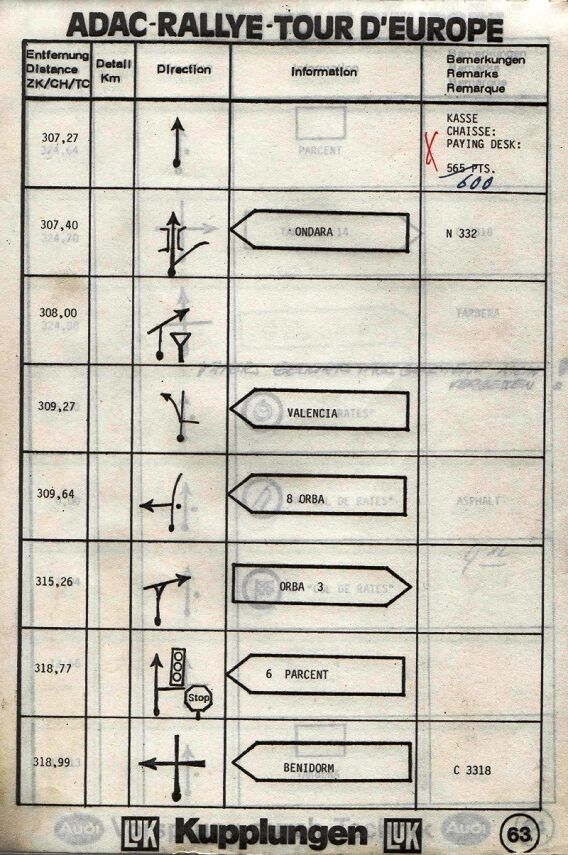 ADAC-RALLYE-TOUR D'EUROPE
Entfernung
Distance
ZK/CH/TC
Detail
Km
Direction
Information
Bemerkungen
Remarks
Remarque
307,27
KASSE
CHAISSE:
PAYING DESK:
565 PTS.
600
307,40
ONDARA
N 332
308,00
309,27
VALENCIA
309,64
8 ORBA
315,26
ORBA 3
318,77
Stop
6 PARCENT
318,99
BENIDORM
C 3318
LUK Kupplungen LUK
63